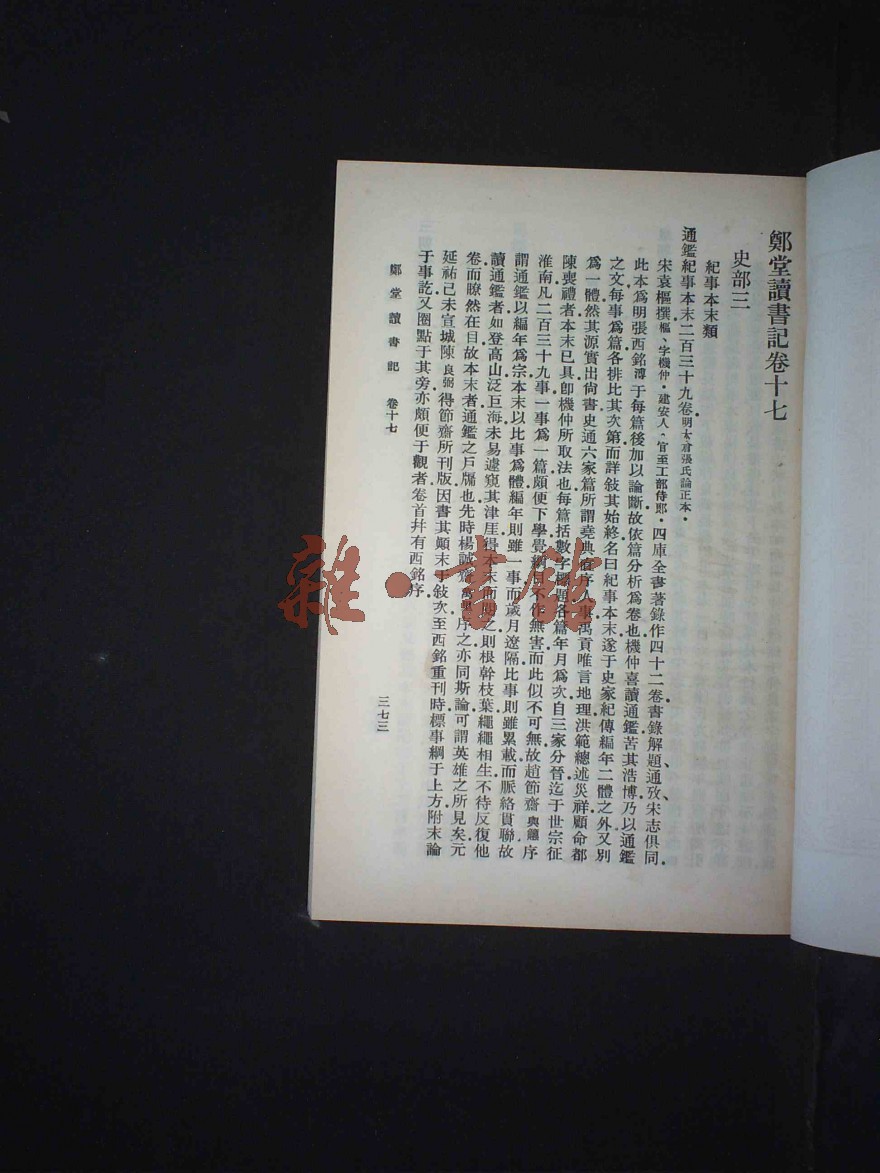 鄭堂讀書記卷十七
史部三
紀事本末類
通鑑紀事本末二百三十九卷明太倉張氏論正本
宋袁樞撰樞、字機仲、建安人、官至工部侍郎、四庫全書著錄作四十二卷書錄解題、通攷、宋志俱同
此本爲明張西銘溥于每篇後加以論斷故依篇分析爲卷也機仲喜讀通鑑苦其浩博乃以通鑑
之文每事爲篇各排比其次第而詳敍其始終名曰紀事本末遂于史家紀傳編年二體之外又別
爲一體然其源實出尙書史通六家篇所謂堯典直序人事禹貢唯言地理洪範總述災祥顧命都
陳喪禮者本末已具卽機仲所取法也每篇括數字標題各篇年月爲次自三家分晉迄于世宗征
淮南凡二百三十九事一事爲一篇頗便下學覺綱目不作無害而此似不可無故趙節齋與𥲅序
謂通鑑以編年爲宗本末以比事爲體編年則雖一事而歲月遼隔比事則雖累載而脈絡貫聯故
讀通鑑者如登高山泛巨海未易遽窺其津厓得本末而閱之則根幹枝葉繩繩相生不待反復他
卷而瞭然在目故本末者通鑑之戶牖也先時楊誠齋萬里序之亦同斯論可謂英雄之所見矣元
延祐己未宣城陳良弼得節齋所刊版因書其顚末于敍次至西銘重刊時標事綱于上方附末論
于事訖又圈點于其旁亦頗便于觀者卷首幷有西銘序
鄭堂讀書記 卷十七
三七三
雜·書館